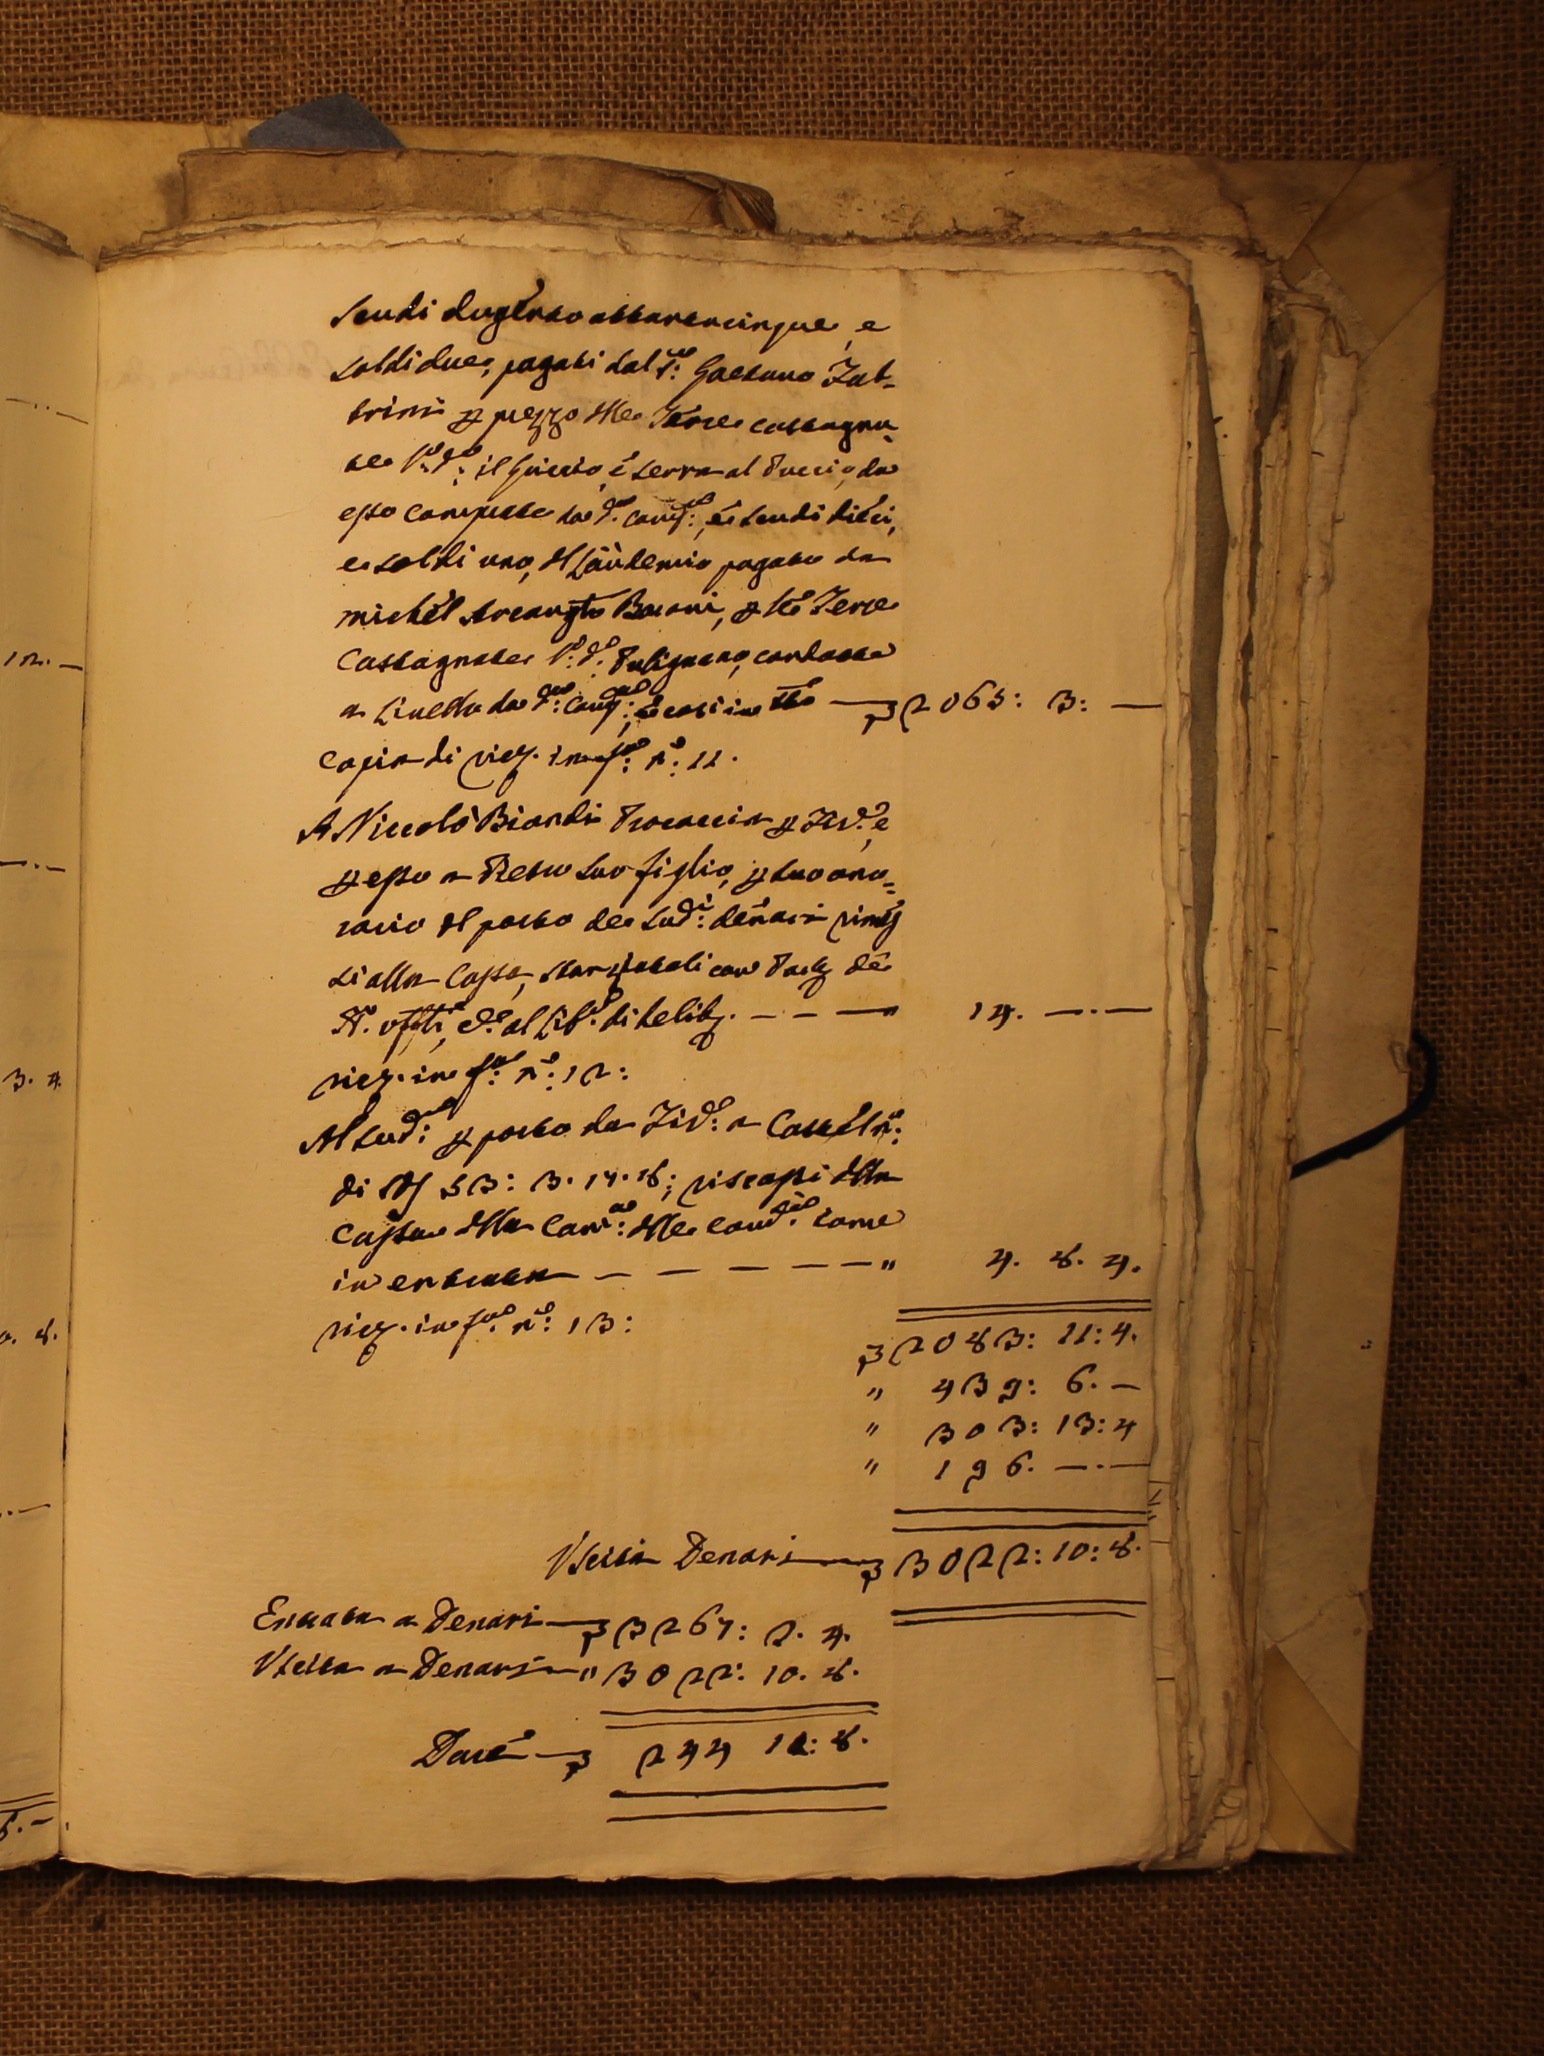 12. —
3. 4
0. 8.
8. —
Scudi dugento ottantacinque, e
soldi due, pagati dal S.re Gaetano Fab-
brini p prezzo delle Terre castagna-
te l.o d.o il Guiccio, e serra al Puccio, da
esso comprate da d.a Com.tà, e scudi dieci,
e soldi uno, di Laudemio pagato da
Michel Arcang.lo Baroni, p Terre
Castagnate l.o d.o Pulignano, condotte
a Livello da d.a Com.tà, e così in tto — 2065: 3: —
Copia di ricev. in f.a n.o: 11.
A Niccolò Biondi Procaccia p Fir.e, e
p esso a Pietro suo figlio, p suo ono-
rario del porto de sud.i denari rimes
si alla Cassa, stanziatoli con Partito de
N. uffti, e d.o al Lib.o di delib. — — — 14. —.—
ricev. in f.a n.o: 12:
Al sud.o p porto da Fir.e a Castel n.o:
di 53: 3. 14. 8; riscossi dalla
Cassa della Cam.a delle Com.tà come
in entrata — — — — — " 4. 8. 4.
ricev. in f.a n.o: 13:
2083: 11: 4.
" 439: 6. —
" 303: 13: 4
" 196. —.—
Uscita Denari — 3022: 10: 8.
Entrata a Denari — 3267: 2. 4.
Uscita a Denari — " 3022: 10. 8.
Dare — 244 11: 8.